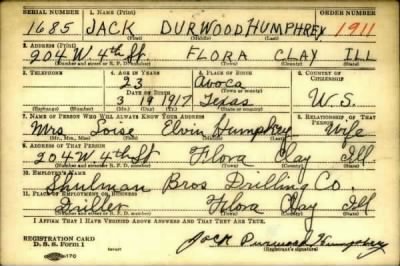 SERIAL NUMBER 1. NAME (Print) ORDER NUMBER
1685 JACK DURWOOD HUMPHREY 1911
(First) (Middle) (Last)
2. ADDRESS (Print)
204 W. 4th St FLORA CLAY ILL
(Number and street or R. F. D. number) (Town) (County) (State)
3. TELEPHONE 4. AGE IN YEARS 5. PLACE OF BIRTH 6. COUNTRY OF CITIZENSHIP
23 Avoca
DATE OF BIRTH (Town or county)
3 19 1917 Texas U.S.
(Exchange) (Number) (Mo.) (Day) (Yr.) (State or country)
7. NAME OF PERSON WHO WILL ALWAYS KNOW YOUR ADDRESS 8. RELATIONSHIP OF THAT PERSON
Mrs Elvin Humphrey Wife
(Mr., Mrs., Miss) (First) (Middle) (Last)
9. ADDRESS OF THAT PERSON
204 W. 4th St Flora Clay Ill
(Number and street or R. F. D. number) (Town) (County) (State)
10. EMPLOYER'S NAME
Shulman Bros Drilling Co.
11. PLACE OF EMPLOYMENT OR BUSINESS
Driller Flora Clay Ill
(Number and street or R. F. D. number) (Town) (County) (State)
I AFFIRM THAT I HAVE VERIFIED ABOVE ANSWERS AND THAT THEY ARE TRUE.
REGISTRATION CARD
D. S. S. Form 1 Jack Durwood Humphrey
(Registrant's signature)